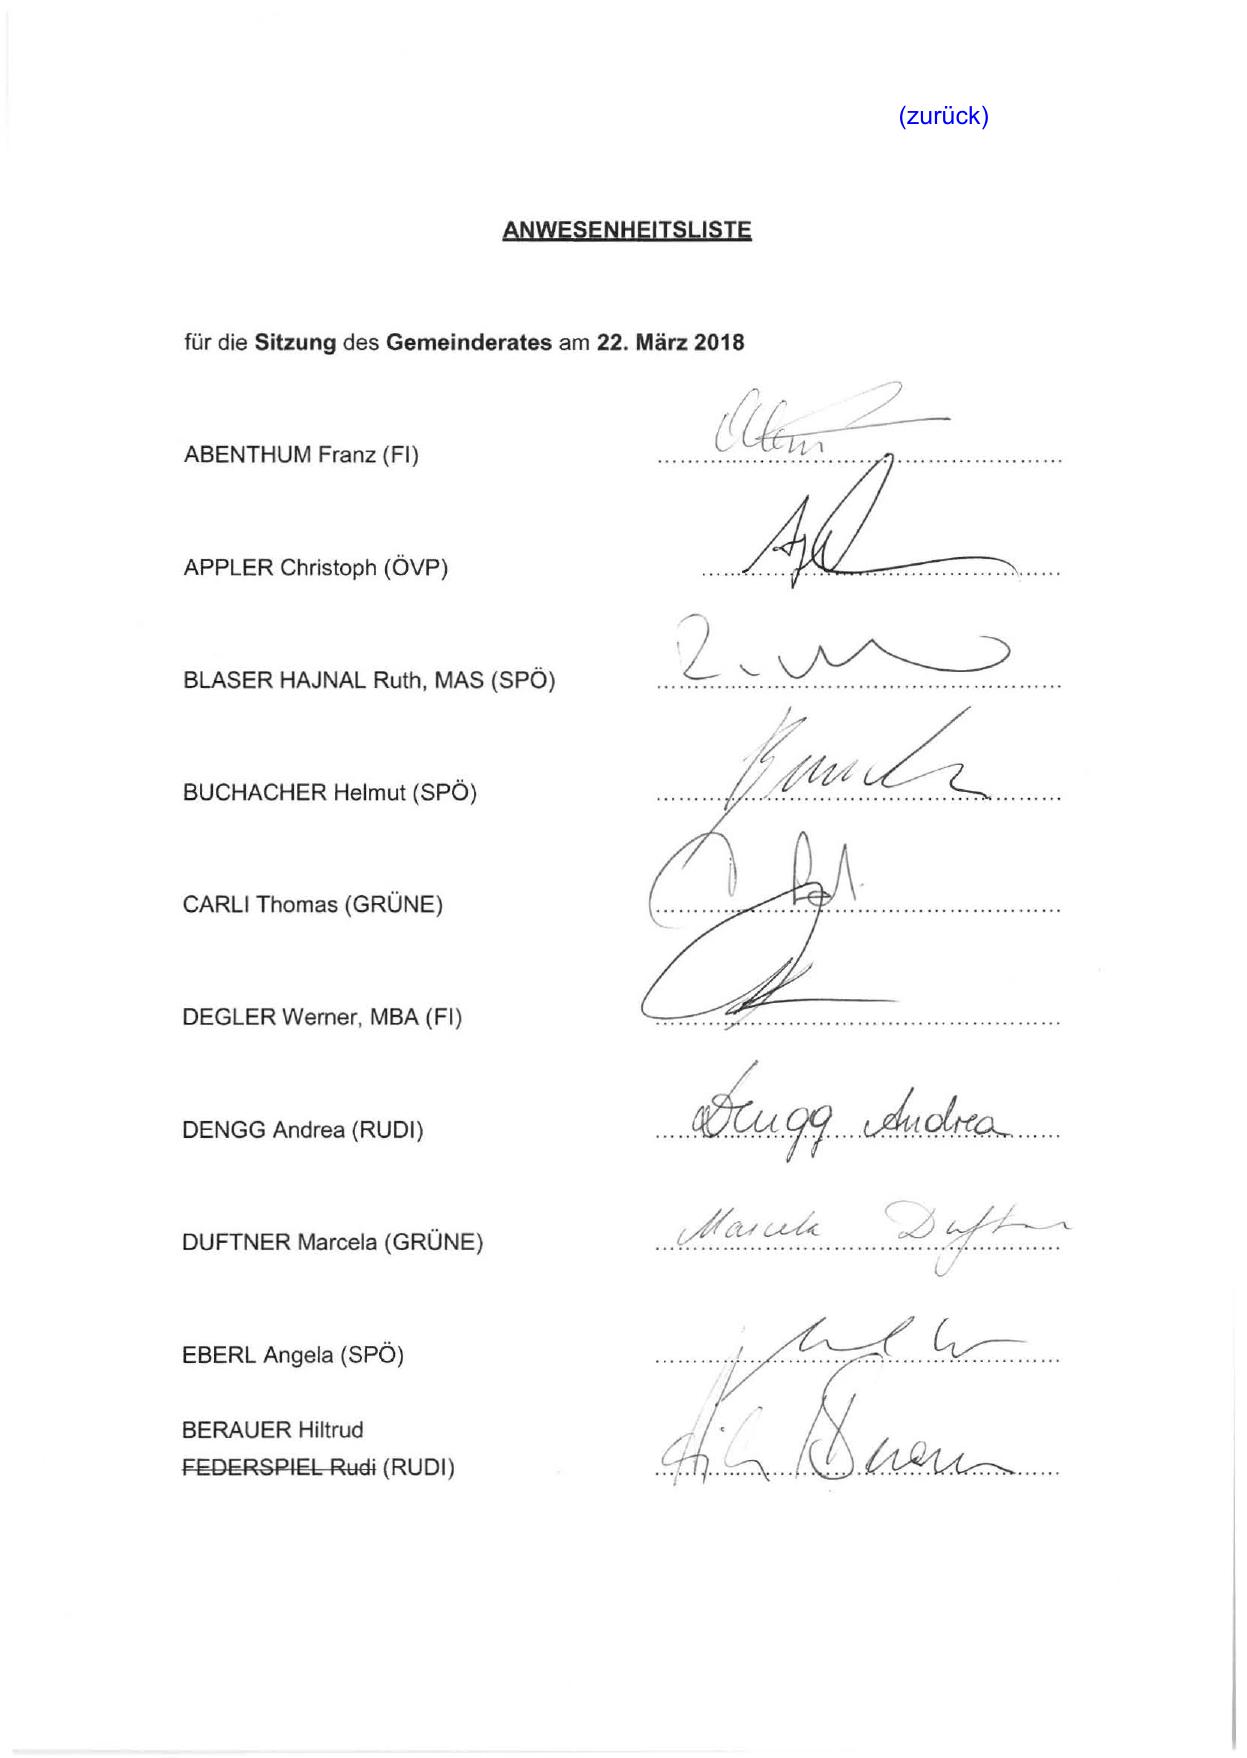 (zurück)
ANWESENHEITSLISTE
für die Sitzung des Gemeinderates am 22. März 2018
ABENTHUM Franz (FI)
APPLER Christoph (ÖVP)
BLASER HAJNAL Ruth, MAS (SPÖ)
BUCHACHER Helmut (SPÖ)
CARLI Thomas (GRÜNE)
DEGLER Werner, MBA (FI)
DENGG Andrea (RUDI) Dengg Andrea
DUFTNER Marcela (GRÜNE) Marcela Duftner
EBERL Angela (SPÖ)
BERAUER Hiltrud
FEDERSPIEL Rudi (RUDI)